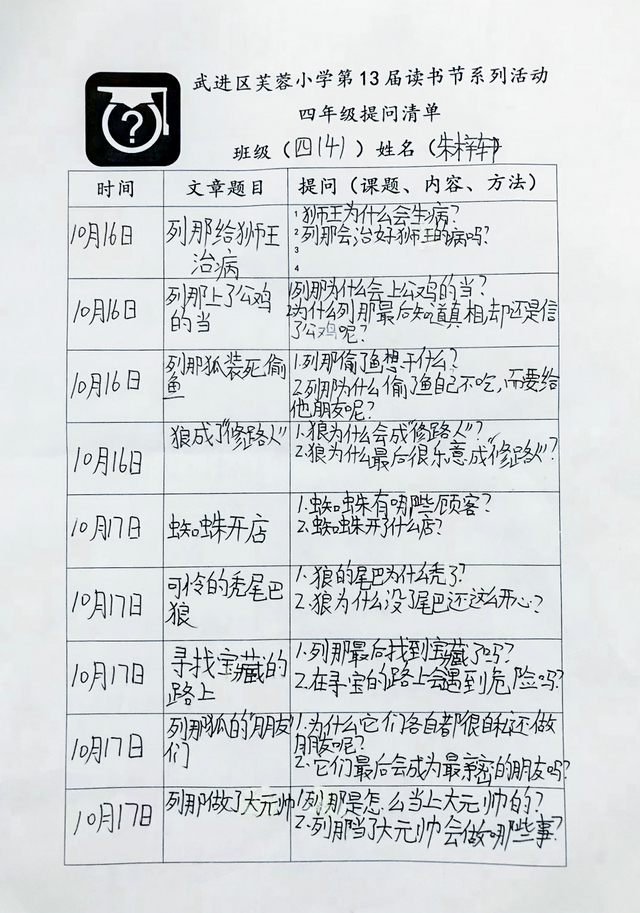 ?
武进区芙蓉小学第13届读书节系列活动
四年级提问清单
班级（四(4)）姓名（朱梓轩）
时间 文章题目 提问（课题、内容、方法）
10月16日
列那给狮王
治病
1 狮王为什么会生病?
2 列那会治好狮王的病吗?
3
4
10月16日
列那上了公鸡
的当
1.列那为什么会上公鸡的当?
2.为什么列那最后知道真相,却还是信
了公鸡呢?
10月16日
列那狐装死偷
鱼
1.列那偷了鱼想干什么?
2.列那为什么偷了鱼自己不吃,而要给
他朋友呢?
10月16日
狼成了“修路人”
1.狼为什么会成“修路人”?
2.狼为什么最后很乐意成“修路人”?
10月17日
蜘蛛开店
1.蜘蛛有哪些顾客?
2.蜘蛛开了什么店?
10月17日
可怜的秃尾巴
狼
1.狼的尾巴为什么秃了?
2.狼为什么没了尾巴还这么开心?
10月17日
寻找宝藏的
路上
1.列那最后找到宝藏了吗?
2.在寻宝的路上会遇到危险吗?
10月17日
列那狐的“朋友”
们
1.为什么它们各自都很自私还做
朋友呢?
2.它们最后会成为最亲密的朋友吗?
10月17日
列那做了大元帅
1.列那是怎么当上大元帅的?
2.列那当了大元帅会做哪些事?